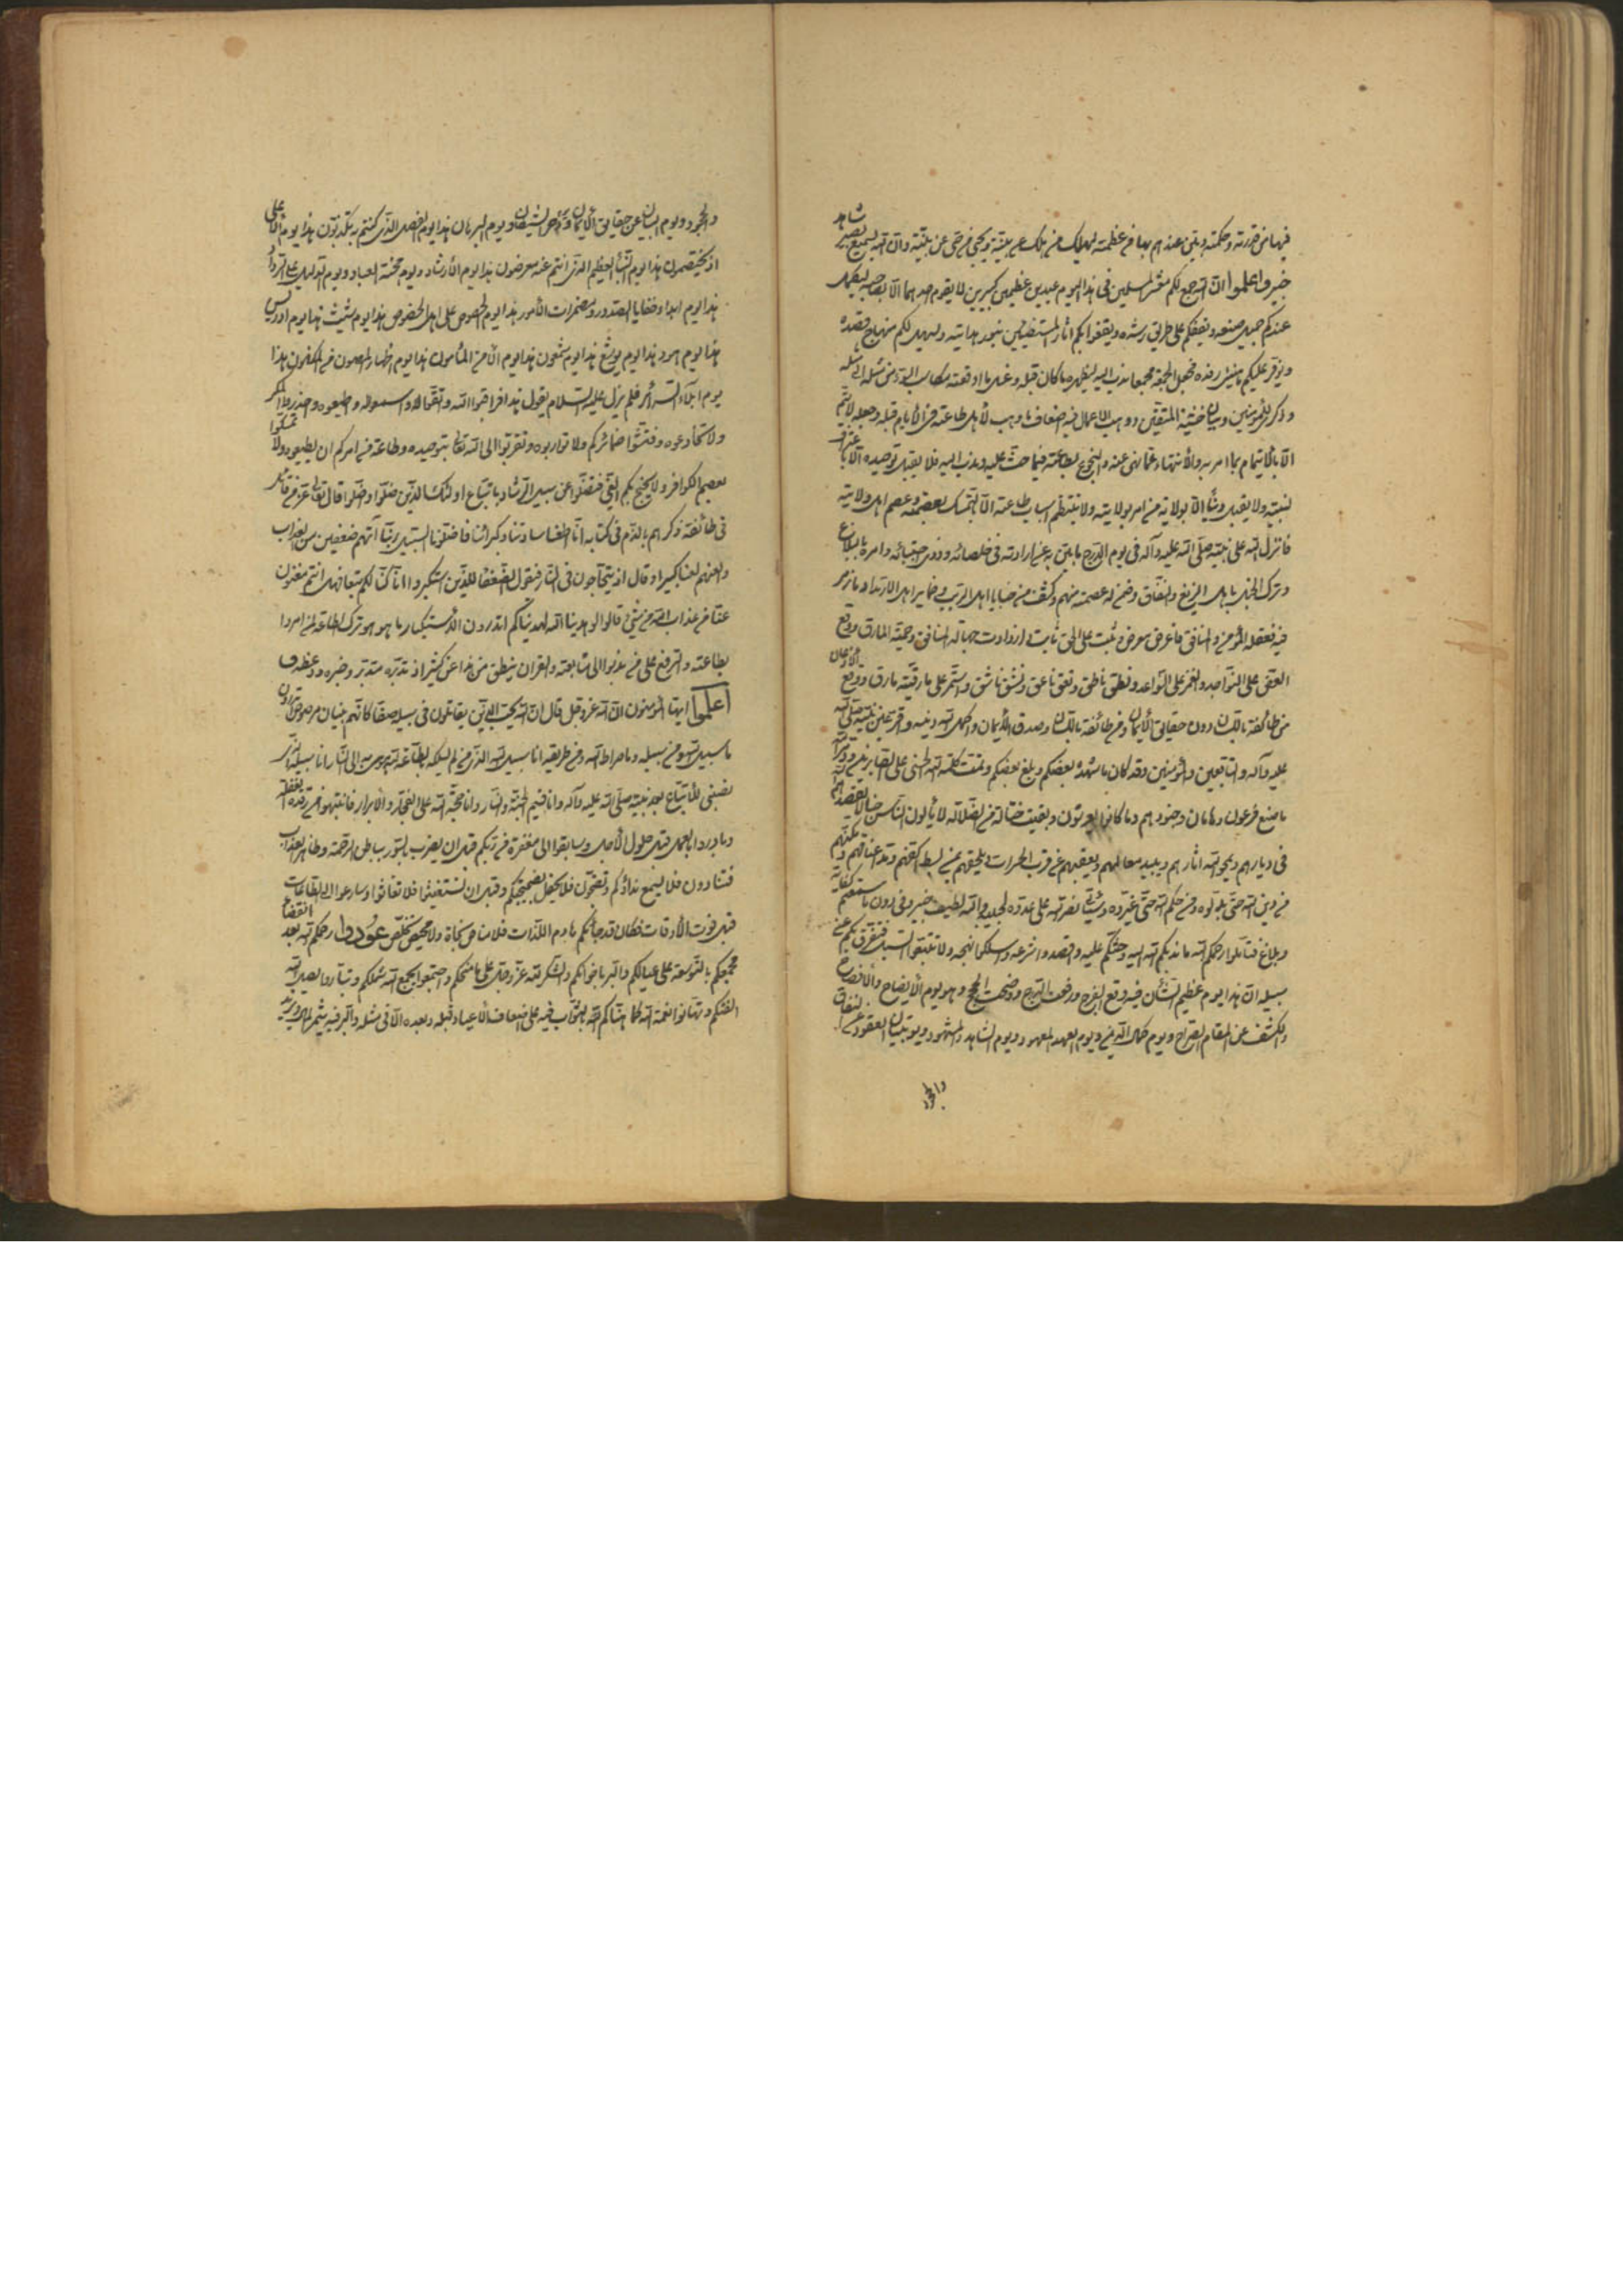 فيها من قدرته وحكمته وبين عندهم بها من عظمته ليهلك من هلك عن بينة ويحيى من حي عن بينة وان الله لسميع بصير شاهد
خبير واعلموا ان الله جمع لكم معشر المسلمين في هذا اليوم عيدين عظيمين كبيرين لا يقوم احدهما الا بصاحبه ليكمل
عندكم جميل صنعه ويقفكم على طريق رشده ويقفوا بكم آثار المستضيئين بنور هدايته ويسهل لكم منهاج قصده
ويوفر عليكم هنيئ رفده فجعل الجمعة مجمعا ندب اليه لتطهير ما كان قبله وغسل ما اوقعته مكاسب السوء من مثله الى مثله
وذكرى للمؤمنين وتبيان خشية المتقين ووهب لاهل طاعته في الايام قبله وجعله لا يتم
الا بالايتمار بما امر به والانتهاء عما نهى عنه والبخوع بطاعته فيما حث عليه وندب اليه فلا يقبل توحيده الا بالاعتراف
لنبيه ولا يقبل دينا الا بولاية من امر بولايته ولا ينتظم اسباب طاعته الا بالتمسك بعصمته وعصم اهل ولايته
فانزل الله على نبيه صلى الله عليه وآله في يوم الدوح ما بين به عن ارادته في خلصائه وذوي اجتبائه وامره بالبلاغ
وترك الحفل باهل الزيغ والنفاق وضمن له عصمته منهم وكشف من خبايا اهل الريب وضماير اهل الارتداد ما رمز
فيه فعقله المؤمن والمنافق فاعرض معرض وثبت على الحق ثابت وازدادت جهالة المنافق وحمية المارق ووقع
العض على النواجد والغمز على السواعد ونطق ناطق ونعق ناعق ونشق ناشق واستمر على مارقيته مارق ووقع الاذعان
من طائفة باللسان دون حقايق الايمان ومن طائفة باللسان وصدق الايمان واكمل الله دينه واقر عين نبيه صلى الله
عليه وآله والتابعين والمؤمنين وقد كان ما شهده بعضكم وبلغ بعضكم وتمت كلمة الله الحسنى على الصابرين ودمر الله
ما صنع فرعون وهامان وجنودهم وما كانوا يعرشون وبقيت حثالة من الضلالة لا يألون الناس خبالا يقصدهم الله
في ديارهم ويمحو الله آثارهم ويبيد معالمهم ويعقبهم عن قرب الحسرات ويلحقهم بمن بسط اكفهم ومد اعناقهم ومكنهم
من دين الله حتى بدلوه ومن حكم الله حتى غيروه وسيأتي نصر الله على عدوه لحينه والله لطيف خبير وفي دون ما سمعتم كفاية
وبلاغ فتأملوا رحمكم الله ما ندبكم الله اليه وحثكم عليه واقصدوا شرعه واسلكوا نهجه ولا تتبعوا السبل فتفرق بكم عن
سبيله ان هذا يوم عظيم الشأن فيه وقع الفرج ورفعت الدرج ووضحت الحجج وهو يوم الايضاح والافصاح
والكشف عن المقام الصراح ويوم كمال الدين ويوم العهد المعهود ويوم الشاهد والمشهود ويوم تبيان العقود عن النفاق
والجحود
والجحود ويوم البيان عن حقايق الايمان ويوم دحر الشيطان ويوم البرهان هذا يوم الفصل الذي كنتم به تكذبون هذا يوم الملأ الاعلى
اذ يختصمون هذا يوم النبأ العظيم الذي انتم عنه معرضون هذا يوم الارشاد ويوم محنة العباد ويوم الدليل على الرواد
هذا يوم ابداء خفايا الصدور ومضمرات الامور هذا يوم النصوص على اهل الخصوص هذا يوم شيث هذا يوم ادريس
هذا يوم هود هذا يوم يوشع هذا يوم شمعون هذا يوم الامن المأمون هذا يوم اظهار المصون من المكنون هذا
يوم ابلاء السرائر فلم يزل عليه السلام يقول هذا فراقبوا الله واتقوا الله واسمعوا له واطيعوه واحذروا المكر
ولا تخادعوه وفتشوا ضمائركم ولا تواربوه وتقربوا الى الله تعالى بتوحيده وطاعة من امركم ان تطيعوه ولا تمسكوا
بعصم الكوافر ولا يجنح بكم الغي فتضلوا عن سبيل الرشاد باتباع اولئك الذين ضلوا واضلوا قال تعالى عز من قائل
في طائفة ذكرهم بالذم في كتابه انا اطعنا سادتنا وكبرائنا فاضلونا السبيل ربنا آتهم ضعفين من العذاب
والعنهم لعنا كبيرا وقال اذ يتحاجون في النار فيقول الضعفاء للذين استكبروا انا كنا لكم تبعا فهل انتم مغنون
عنا من عذاب الله من شيء قالوا لو هدينا الله لهديناكم اتدرون الاستكبار ما هو هو ترك الطاعة لمن امروا
بطاعته والترفع على من ندبوا الى متابعته والقران ينطق من هذا عن كثير اذ تدبره متدبر زجره ووعظه
اعلموا ايها المؤمنون ان الله عز وجل قال ان الله يحب الذين يقاتلون في سبيله صفا كانهم بنيان مرصوص اتدرون
ما سبيل الله ومن سبيله وما صراط الله ومن طريقه انا سبيل الله الذي من لم يسلكه بطاعة الله هوى به الى النار انا سبيله الذي
نصبني للاتباع بعد نبيه صلى الله عليه وآله وانا قسيم الجنة والنار وانا حجة الله على الفجار والابرار فانتبهوا من رقدة الغفلة
وبادروا بالعمل قبل حلول الاجل وسابقوا الى مغفرة من ربكم قبل ان يضرب بالسور بباطن الرحمة وظاهر العذاب
فتنادون فلا يسمع نداؤكم وتضجون فلا يحفل بضجيجكم وقبل ان تستغيثوا فلا تغاثوا وسارعوا الى الطاعات
قبل فوت الاوقات فكان قد جائكم هادم اللذات فلا مناص نجاة ولا محيص تخلص عودوا رحمكم الله بعد انقضاء
مجمعكم بالتوسعة على عيالكم والبر باخوانكم والشكر لله عز وجل على ما منحكم واجتمعوا يجمع الله شملكم وتباروا يصل الله
الفتكم وتهانوا نعمة الله كما هناكم الله بالثواب فيه على اضعاف الاعياد قبله وبعده الا في مثله والبر فيه يثمر المال ويزيد